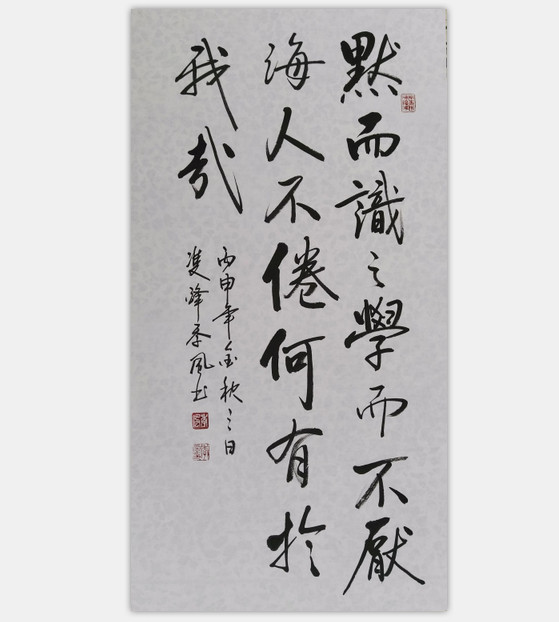 默而識之學而不厭
誨人不倦何有於
我哉
丙申年金秋之日
雙峰奉風書